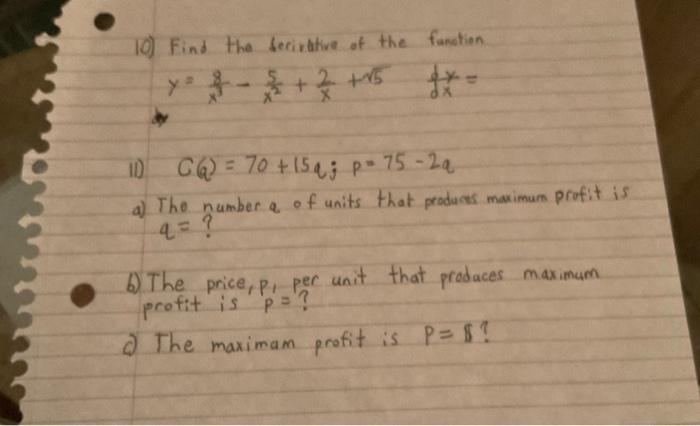 10) Find the derivative of the function
y = 8/x³ - 5/x² + 2/x + √5 dy/dx =
11) C(q) = 70 + 15q; p = 75 - 2q
a) The number q of units that produces maximum profit is
q = ?
b) The price, p, per unit that produces maximum
profit is p = ?
c) The maximam profit is P = $?